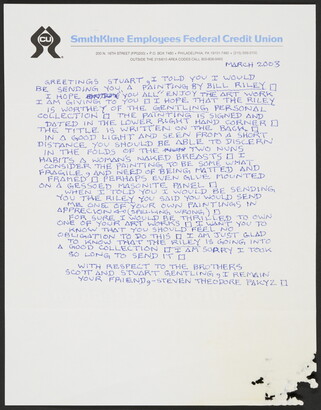 CU
SmithKline Employees Federal Credit Union
OUTSIDE THE 215/610 AREA CODES CALL
MARCH 2003
GREETINGS STUART, I TOLD YOU I WOULD
BE SENDING YOU A PAINTING BY BILL RILEY □
I HOPE YOU "ALL" ENJOY THE ART WORK
I AM GIVING TO YOU □ I HOPE THAT THE RILEY
IS WORTHY OF THE GENTLING PERSONAL
COLLECTION □ THE PAINTING IS SIGNED AND
DATED IN THE LOWER RIGHT HAND CORNER □
THE TITLE IS WRITTEN ON THE BACK □
IN A GOOD LIGHT AND SEEN FROM A SHORT
DISTANCE YOU SHOULD BE ABLE TO DISCERN
IN THE FOLDS OF THE TWO NUNS
HABITS A WOMAN'S NAKED BREASTS □ I
CONSIDER THE PAINTING TO BE SOME WHAT
FRAGILE, AND NEED OF BEING MATTED AND
FRAMED □ PERHAPS EVEN GLUE MOUNTED
ON A GESSOED MASONITE PANEL □
WHEN I TOLD YOU I WOULD BE SENDING
YOU THE RILEY YOU SAID YOU WOULD SEND
ME ONE OF YOUR OWN PAINTINGS IN
APPRECIATION (SPELLING WRONG) □
FOR SURE I WOULD BE THRILLED TO OWN
ONE OF YOUR ART WORKS, I WANT YOU TO
KNOW THAT YOU SHOULD FEEL NO
OBLIGATION TO DO THIS □ I AM JUST GLAD
TO KNOW THAT THE RILEY IS GOING INTO
A GOOD COLLECTION □ I AM SORRY I TOOK
SO LONG TO SEND IT □
WITH RESPECT TO THE BROTHERS
SCOTT AND STUART GENTLING, I REMAIN
YOUR FRIEND, STEVEN THEODORE PAKYZ □